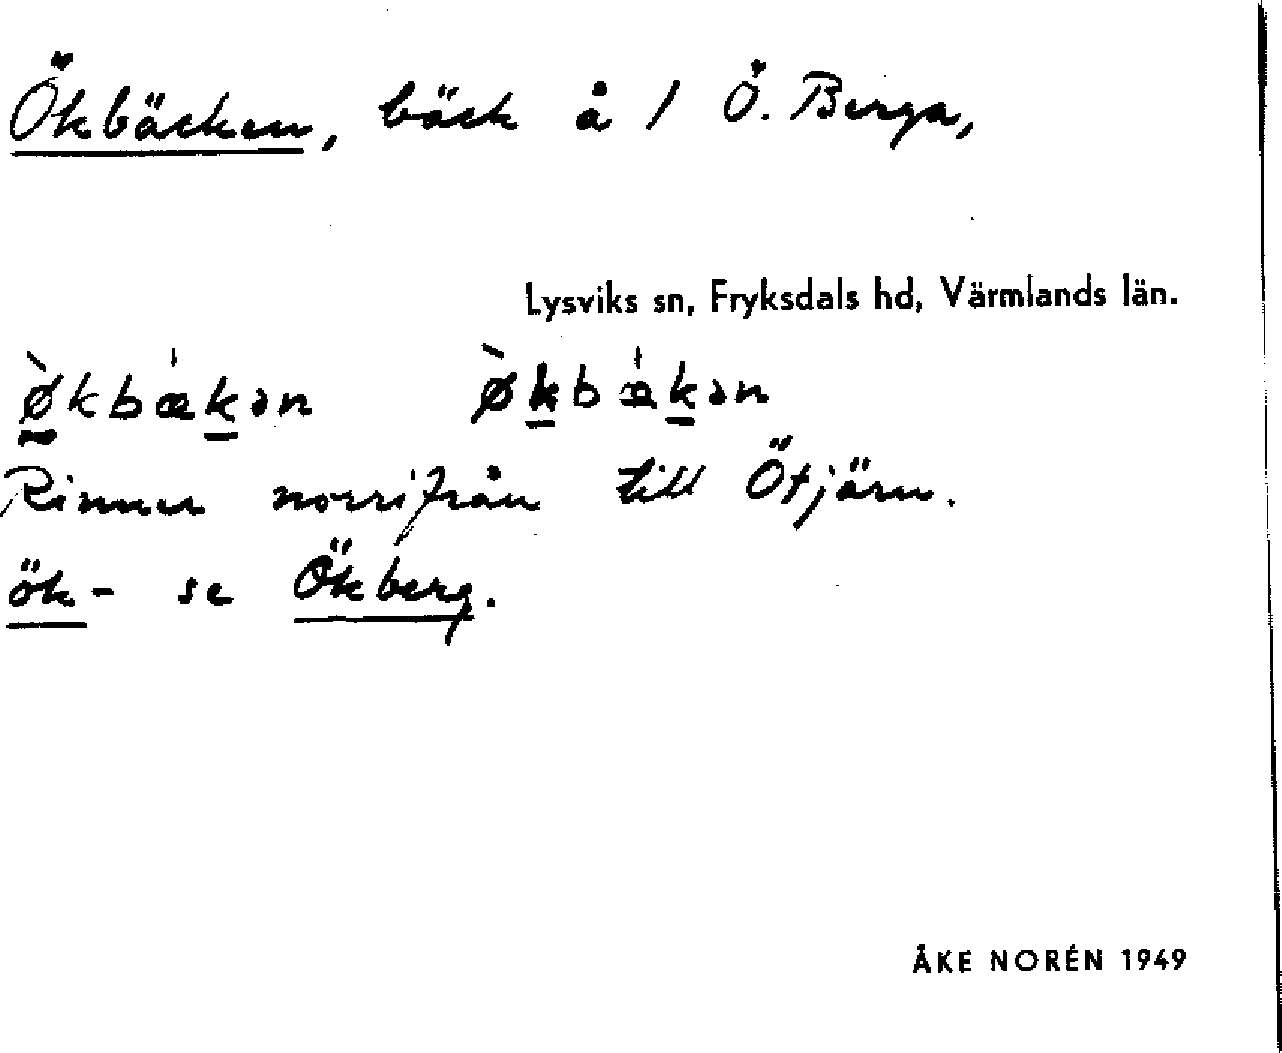 Ökbäcken, bäck å 1 Ö. Berga,
Lysviks sn, Fryksdals hd, Värmlands län.
ø̀kbækən ø̀kbækən
Rinner norrifrån till Ötjärn.
ök- se Ökberg.
ÅKE NORÉN 1949